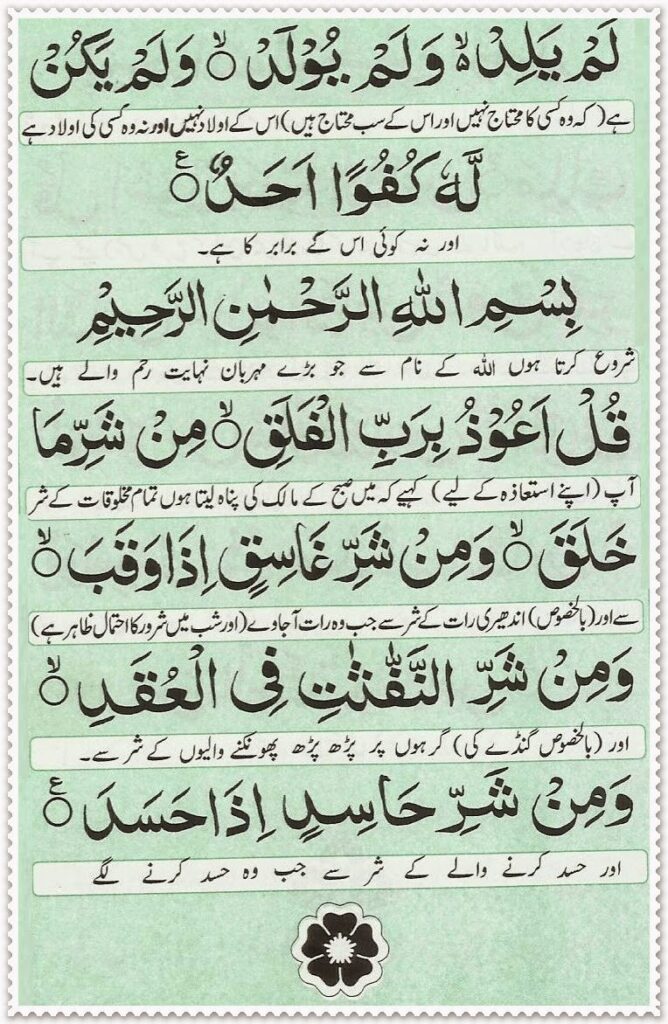 لَمْ يَلِدْ ۙ۬ وَلَمْ يُوْلَدْ ۙ وَلَمْ يَكُنْ
ہے (کہ وہ کسی کا محتاج نہیں اور اس کے سب محتاج ہیں) اس کے اولاد نہیں اور نہ وہ کسی کی اولاد ہے
لَّهٗ كُفُوًا اَحَدٌ ۧ
اور نہ کوئی اس کے برابر کا ہے۔
بِسْمِ اللّٰهِ الرَّحْمٰنِ الرَّحِيْمِ
شروع کرتا ہوں اللہ کے نام سے جو بڑے مہربان نہایت رحم والے ہیں۔
قُلْ اَعُوْذُ بِرَبِّ الْفَلَقِ ۙ مِنْ شَرِّ مَا
آپ (اپنے استعاذہ کے لیے) کہیے کہ میں صبح کے مالک کی پناہ لیتا ہوں تمام مخلوقات کے شر
خَلَقَ ۙ وَمِنْ شَرِّ غَاسِقٍ اِذَا وَقَبَ ۙ
سے اور (بالخصوص) اندھیری رات کے شر سے جب وہ رات آ جاوے (اور شب میں شرور کا احتمال ظاہر ہے)
وَمِنْ شَرِّ النَّفّٰثٰتِ فِى الْعُقَدِ ۙ
اور (بالخصوص گنڈے کی) گرہوں پر پڑھ پڑھ پھونکنے والیوں کے شر سے۔
وَمِنْ شَرِّ حَاسِدٍ اِذَا حَسَدَ ۧ
اور حسد کرنے والے کے شر سے جب وہ حسد کرنے لگے